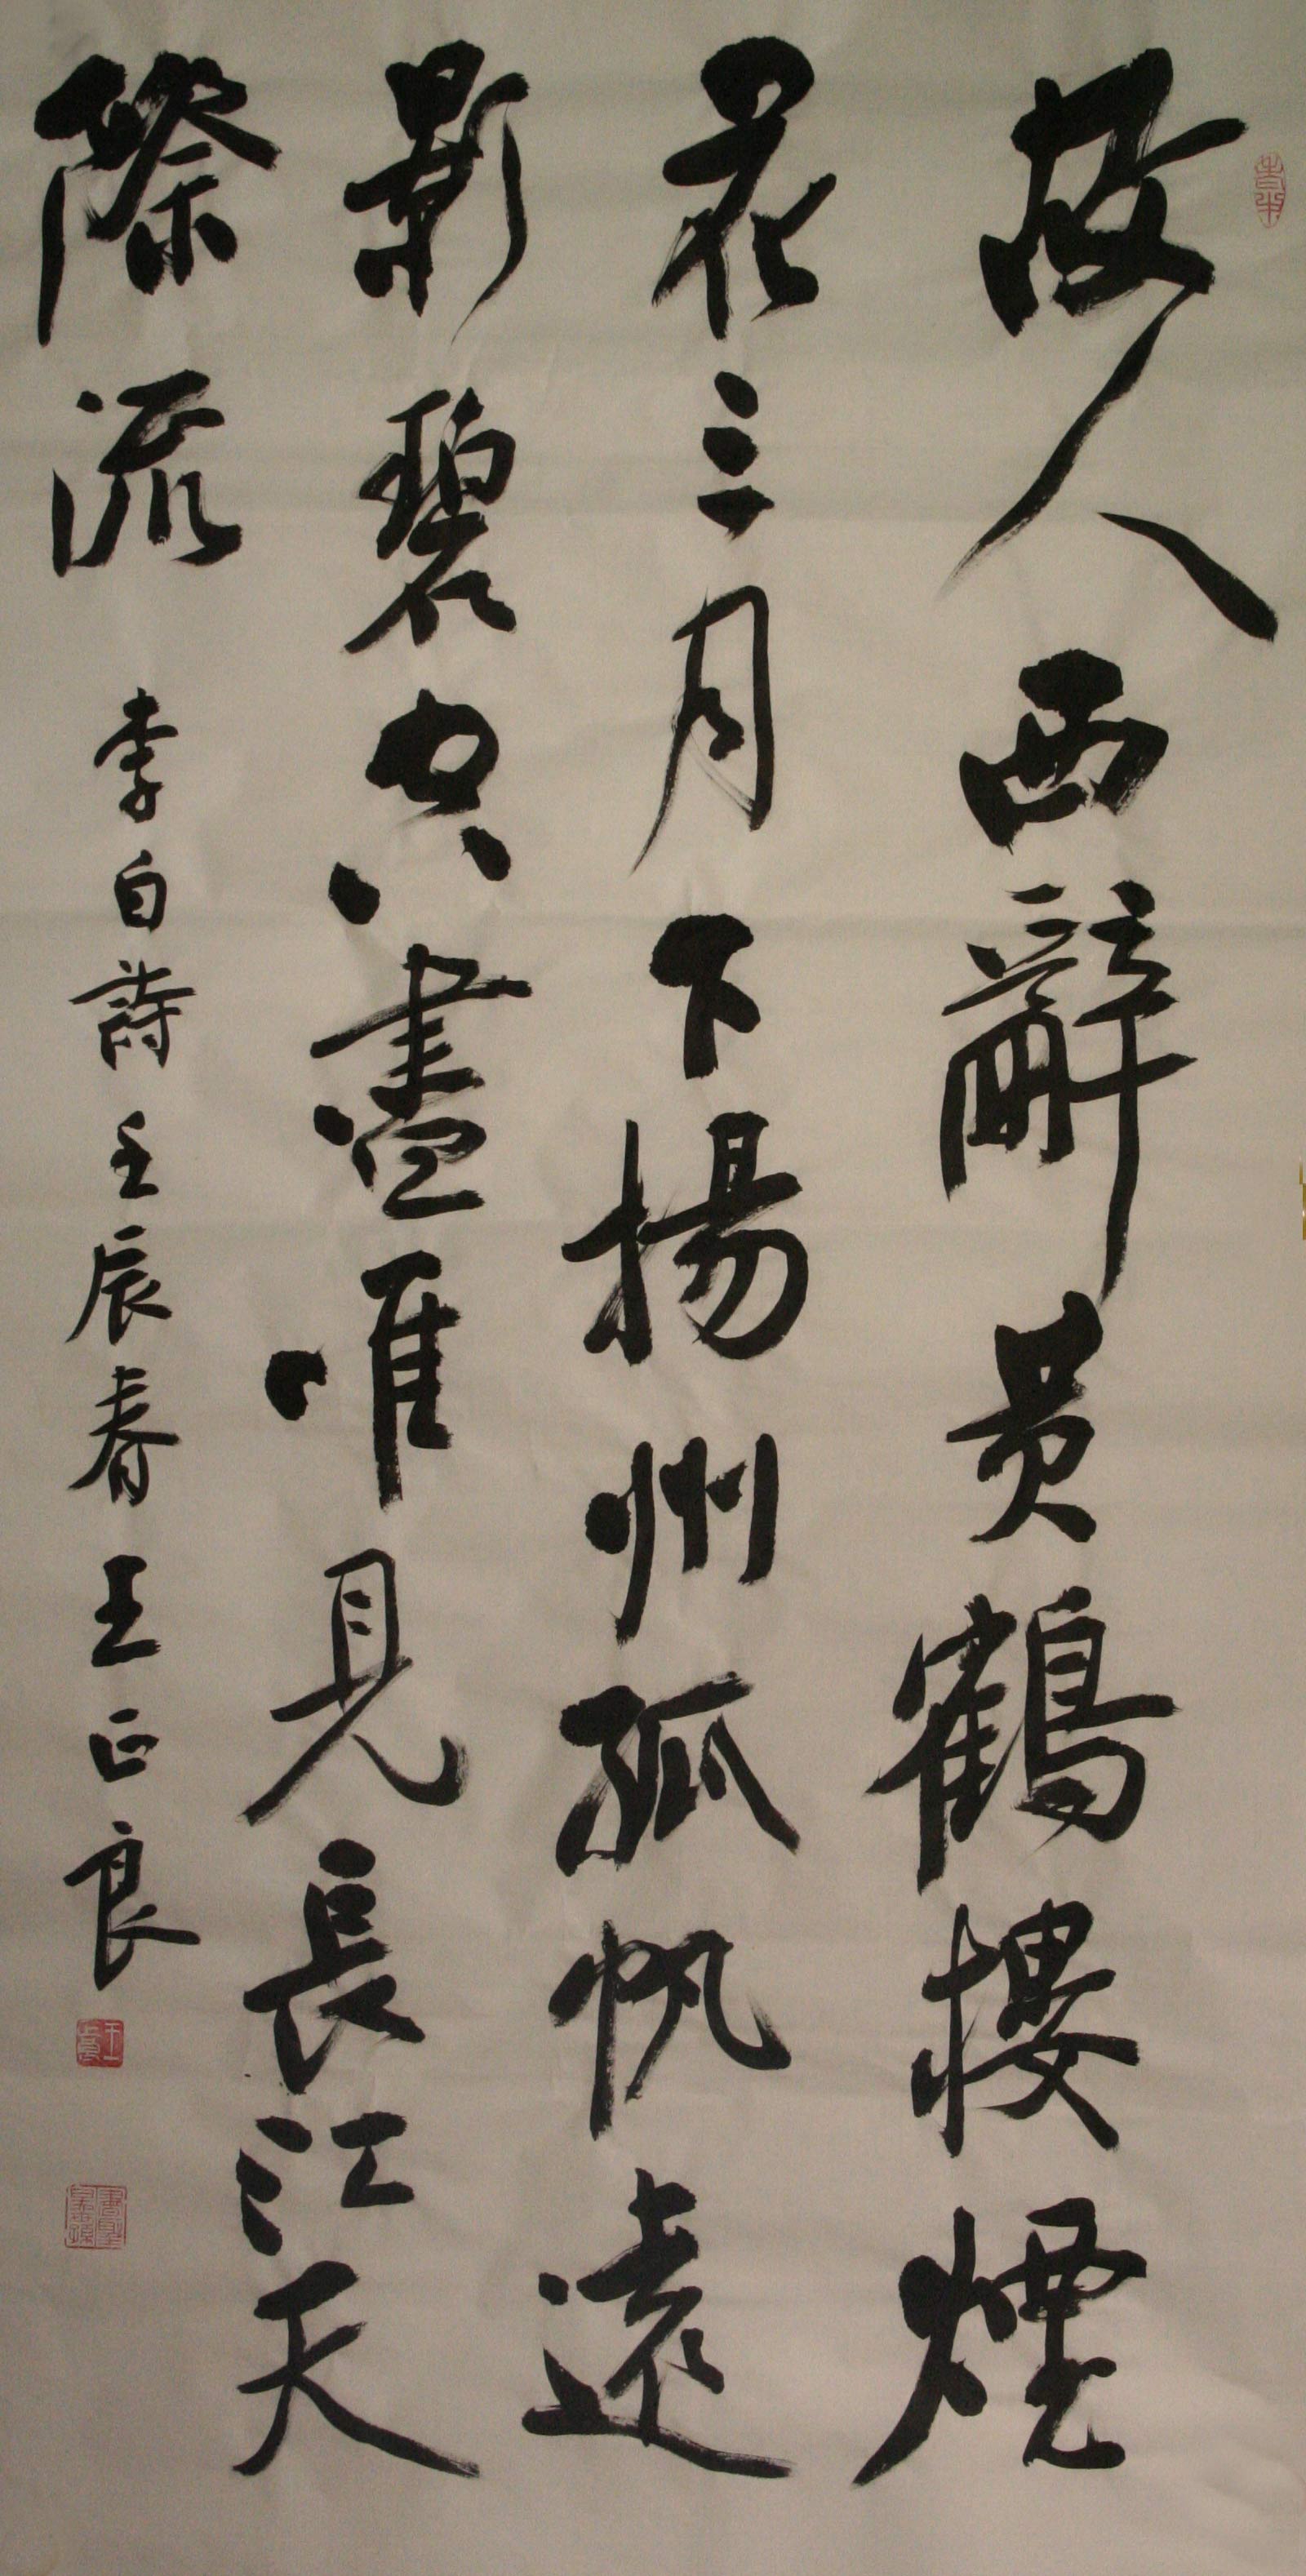 故人西辭黄鶴樓煙
花三月下揚州孤帆遠
影碧空盡唯見長江天
際流
李白詩 壬辰春 王正良